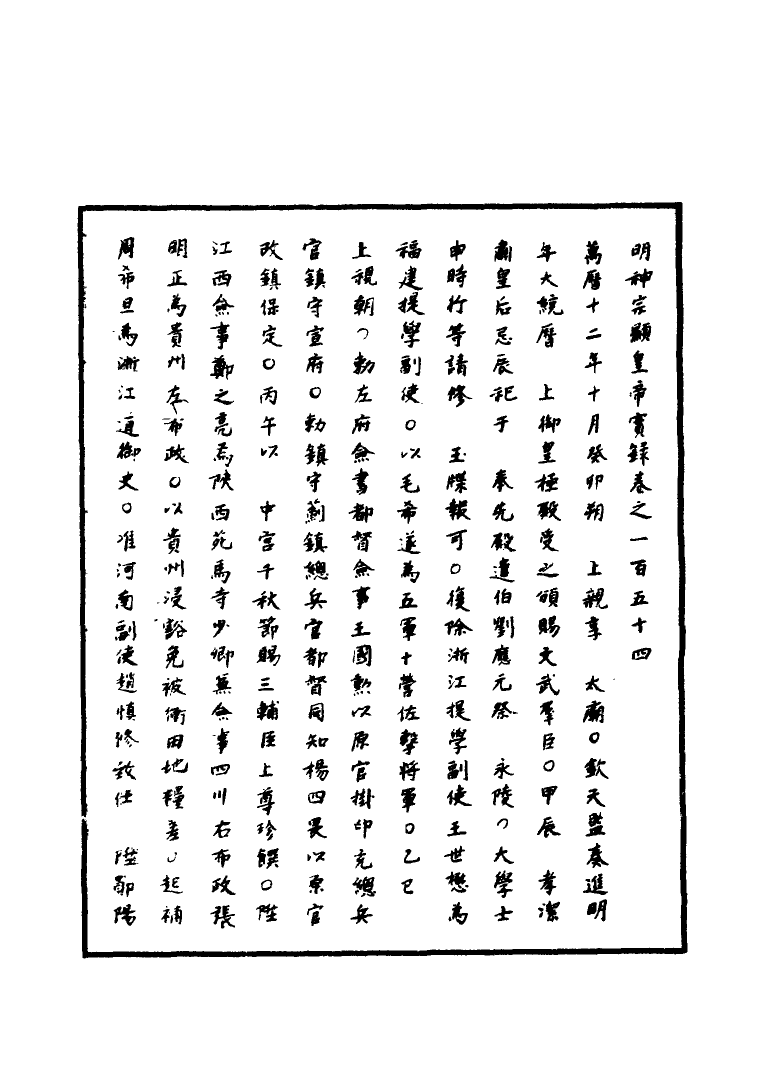 明神宗顯皇帝實録卷之一百五十四
萬曆十二年十月癸卯朔　上親享　太廟○欽天監奏進明
年大統曆　上御皇極殿受之頒賜文武羣臣○甲辰　孝潔
肅皇后忌辰祀于　奉先殿遣伯劉應元祭　永陵○大學士
申時行等請修　玉牒報可○復除浙江提學副使王世懋為
福建提學副使○以毛希遂為五軍十營佐擊將軍○乙巳
上視朝○勅左府僉書都督僉事王國勲以原官掛印充總兵
官鎮守宣府○勅鎮守薊鎮總兵官都督同知楊四畏以原官
改鎮保定○丙午以　中宮千秋節賜三輔臣上尊珍饌○陞
江西僉事鄭之亮為陝西苑馬寺少卿兼僉事四川右布政張
明正為貴州左布政○以貴州浸谿免被衝田地糧差○起補
周希旦為浙江道御史○准河南副使趙慎修致仕　陞鄖陽